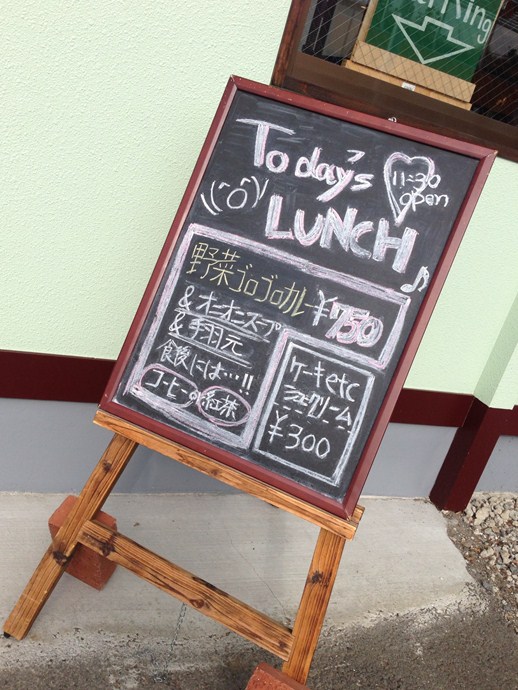 Today's
LUNCH
11:30
open
野菜ゴロゴロカレー ¥750
&オニオンスープ
&手羽元
食後には…!!
コーヒーor紅茶
ケーキetc
シュークリーム
¥300